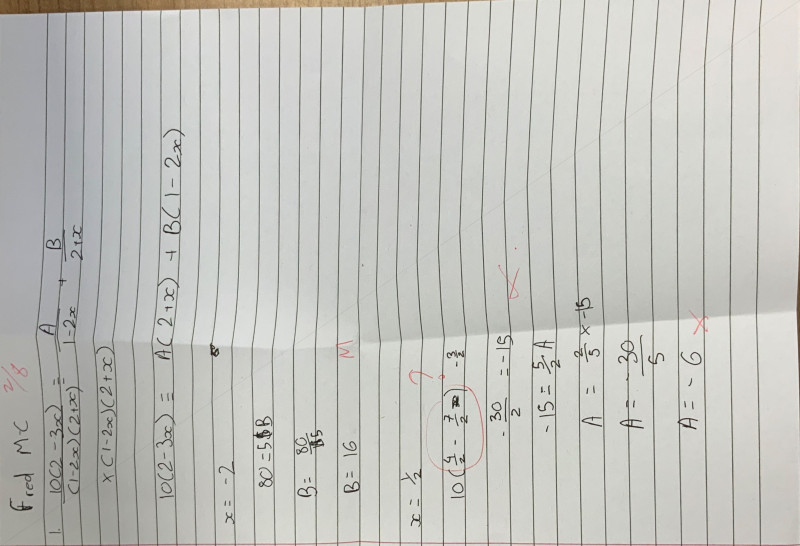 Fred MC 2/8
1. 10(2-3x)/(1-2x)(2+x) = A/1-2x + B/2+x
x(1-2x)(2+x)
10(2-3x) = A(2+x) + B(1-2x)
x = -2
80 = 5B
B = 80/5
B = 16 M
x = 1/2
10(4/2 - 7/2) -3/2 ?
-30/2 = -15 x
-15 = 5/2 A
A = 2/5 x -15
A = -30/5
A = -6 x